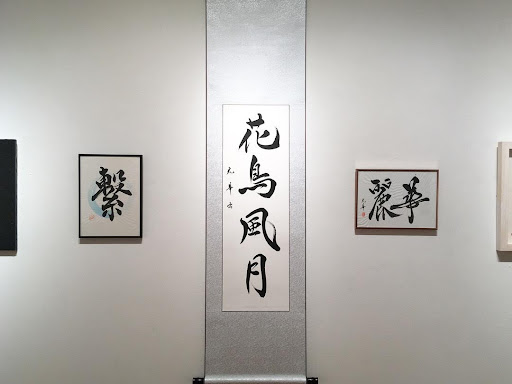 繋
花鳥風月
華麗